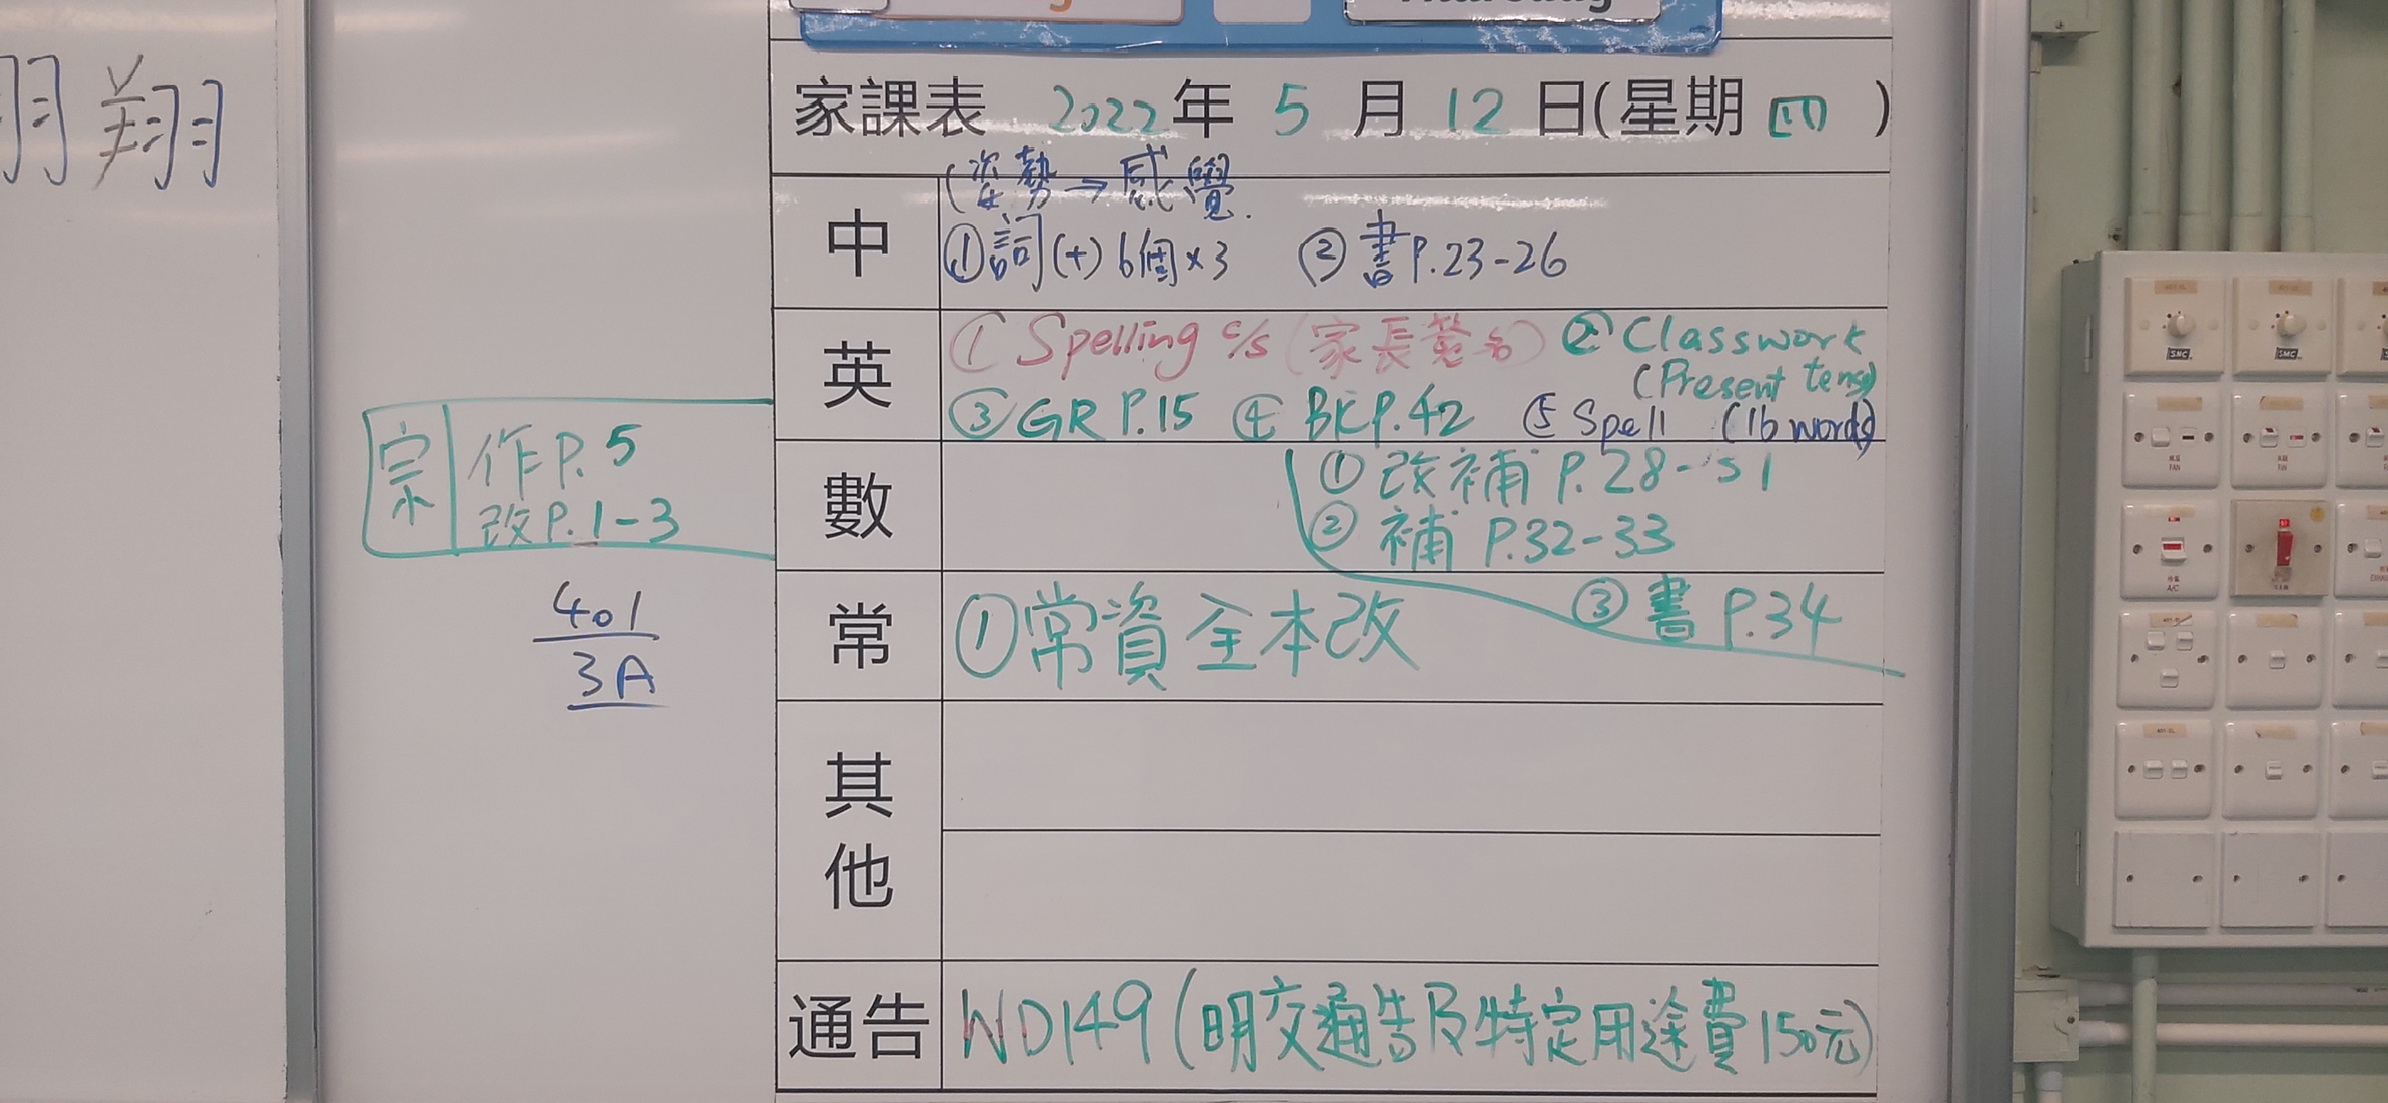 翔
家課表 2022年 5月 12日(星期四)
(姿勢→感覺.
中 ①詞(+)6個×3 ②書P.23-26
英 ①Spelling c/s(家長簽名) ②Classwork
(Present tense)
③GR P.15 ④BK P.42 ⑤Spell (16 words)
宗 作P.5
改P.1-3
數 ①改補P.28-31
②補P.32-33
③書P.34
常 ①常資全本改
401
3A
其他
通告 WD149(明交通告及特定用途費150元)